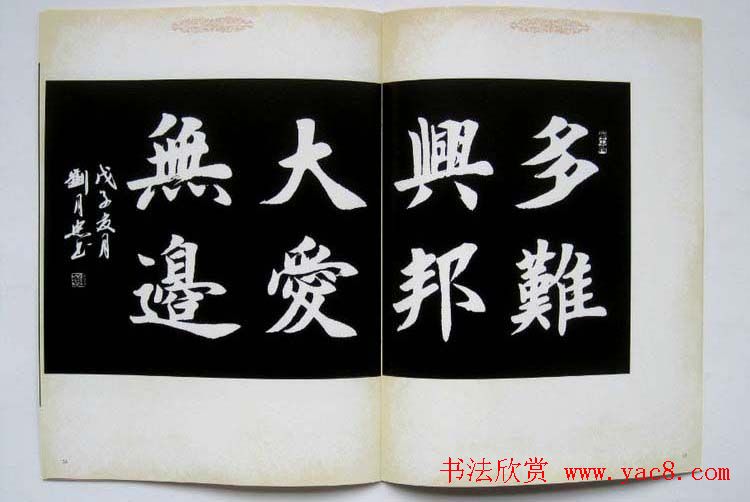 多難
興邦
大愛
無邊
戊子夏月
劉月忠书
书法欣赏 www.yac8.com